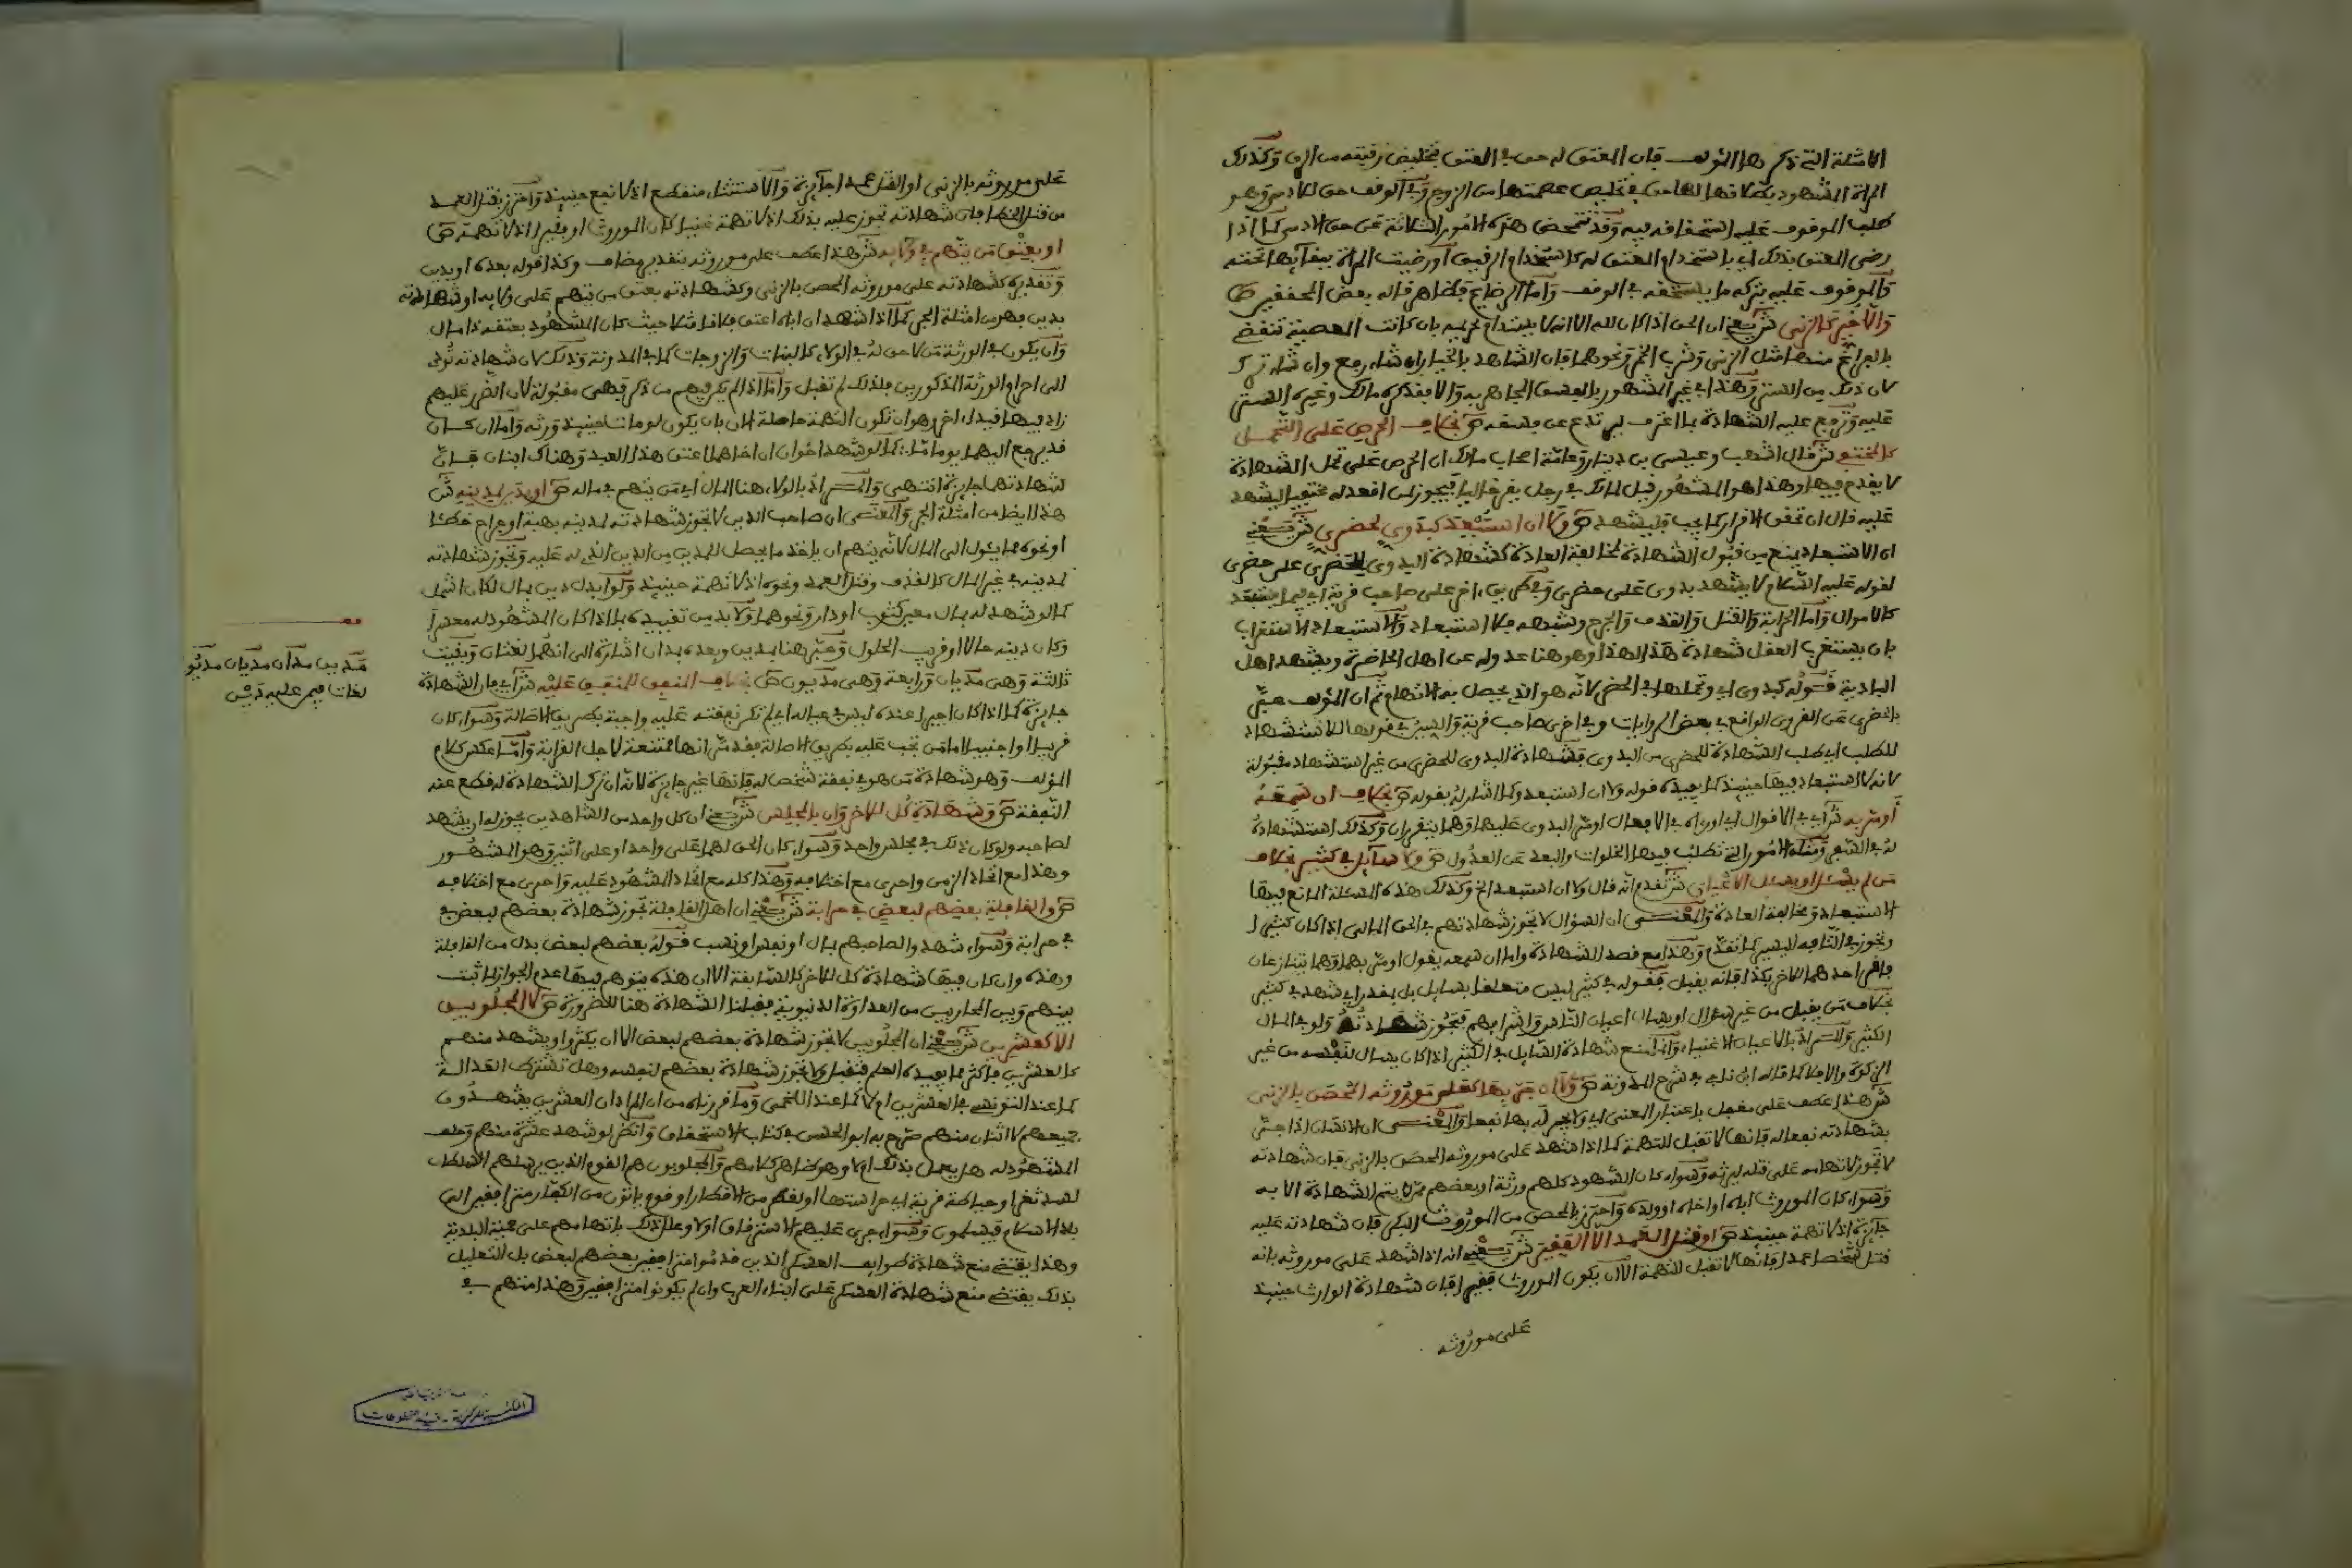 الامثلة التي ذكرها المؤلف فان العتق له حق في العتق بتخليص رقبته من الرق وكذلك
المراة المشهود بطلاقها لها حق في تخليص عصمتها من الزوج وفي الوقف حق للادمي وهو
طلب الموقوف عليه استحقاقه فيه وقد تتمحض هذه الامور الثلاثة عن حق الادمي كما اذا
رضي العتق بذلك اي باستخدام العتق له كاستخدام الرقيق او رضيت المراة ببقائها تحته
والموقوف عليه بتركه ما يستحقه في الوقف واما الرضاع فظاهر قاله بعض المحققين ص
والا خير كالزنى ش يعني ان الحق اذا كان لله الا انه لا يستدام تحريمه بان كانت المعصية تنقضي
بالفراغ منها مثل الزنى وشرب الخمر ونحوهما فان الشاهد بالخيار ان شاء رفع وان شاء ترك
لان ذلك من الستر وهذا في غير المشهور بالفسق المجاهر به والا فقد كره مالك وغيره الستر
عليه وترفع عليه الشهادة بما اقترف ليرتدع عن فسقه ص بخلاف الحرص على التحمل
كالمختفي ش قال اشهب وعيسى بن دينار وعامة اصحاب مالك ان الحرص على تحمل الشهادة
لا يقدح فيها وهذا هو المشهور قيل لمالك في رجل يقر خاليا فيجوز لمن اقعد له مختفيا ليشهد
عليه قال ان تحقق الاقرار كما يجب فليشهد ص ولا ان استبعد كبدوي لحضري ش يعني
ان الاستبعاد يمنع من قبول الشهادة لمخالفة العادة كشهادة البدوي للحضري على حضري
لقوله عليه السلام لا يشهد بدوي على حضري وفي طريق اخر على صاحب قرية اي فيما يستبعد
كالاموال واما الحرابة والقتل والقذف والجرح وشبهه فلا استبعاد والاستبعاد الاستغراب
بان يستغرب العقل شهادة هذا لهذا وهو هنا عدوله عن اهل الحاضرة ويشهد اهل
البادية فقوله كبدوي اي وتحملها في الحضر لانه هو الذي يحصل به الاتهام ثم ان المؤلف عبر
بالحضري عن القروي الواقع في بعض الروايات وفي اخرى صاحب قرية والسين في قولها للاستشهاد
للطلب اي طلب الشهادة للحضري من البدوي فشهادة البدوي للحضري من غير استشهاد مقبولة
لانه لا استبعاد فيها حينئذ كما يفيده قوله ولا ان استبعد وكما اشار له بقوله ص بخلاف ان سمعه
او مر به ش اي في الاقوال اي او راه في الافعال او مر البدوي عليهما وهما يتقرران وكذلك استشهاده
له في السفر ومثله الامور التي تطلب فيها الخلوات والبعد عن العدول ص ولا سائل في كثير بخلاف
من لم يسئل او يسئل الاعيان ش تقدم انه قال ولا ان استبعد الخ وكذلك هذه المسئلة المانع فيها
الاستبعاد ومخالفة العادة والمعنى ان السؤال لا تجوز شهادتهم في الحق المالي اذا كان كثيرا
وتجوز في التافه اليسير كما تقدم وهذا مع قصد الشهادة واما ان سمعه يقول او مر بهما وهما يتنازعان
فاقر احدهما للاخر بكذا فانه يقبل فقوله في كثير ليس متعلقا بسايل بل يقدر اي شهد في كثير
بخلاف من يقبل من غير سؤال او يسال اعيان الناس واشرافهم فتجوز شهادته ولو في المال
الكثير والمراد بالاعيان الاغنياء وانما منع شهادة السايل في الكثير اذا كان يسال لنفسه من غير
الزكوة والا فلا كما قاله ابن ناجي في شرح المدونة ص ولا ان جر بها كعلى موروثه المحصن بالزنى
ش هذا عطف على مغفل باعتبار المعنى اي ولا يجر له بها نفعا والمعنى ان الانسان اذا جر
بشهادته نفعا له فانها لا تقبل للتهمة كما اذا شهد على موروثه المحصن بالزنى فان شهادته
لا تجوز لاتهامه على قتله ليرثه وسواء كان الشهود كلهم ورثة او بعضهم ممن لا يتم الشهادة الا به
وسواء كان الموروث اباه او اخاه او ولده واحترز بالمحصن من الموروث البكر فان شهادته عليه
جايزة اذ لا تهمة حينئذ ص او قتل العمد الا الفقير ش يعني انه اذا شهد على موروثه بانه
قتل شخصا عمدا فانها لا تقبل للتهمة الا ان يكون الموروث فقيرا فان شهادة الوارث حينئذ
على موروثه
على موروثه بالزنى او القتل عمدا جايزة والاستثناء منقطع اذ لا نفع حينئذ واحترز بقتل العمد
من قتل الخطا فان شهادته تجوز عليه بذلك اذ لا تهمة غنيا كان الموروث او فقيرا اذ لا تهمة ص
او بعتق من يتهم في ولايه ش هذا عطف على موروثه بتقدير مضاف وكذا قوله بعده او بدين
وتقديره كشهادته على موروثه المحصن بالزنى وكشهادته بعتق من يتهم على ولايه او شهادته
بدين فهي من امثلة الجر كما اذا شهد ان اباه اعتق فلانا مثلا حيث كان المشهود بعتقه ذا مال
وان يكون في الورثة من لا حق له في الولاء كالبنات والزوجات كما في المدونة وذلك لان شهادته تؤدي
الى احرام الورثة المذكورين فلذلك لم تقبل واما اذا لم يكن فيهم من ذكر فهي مقبولة لان الضرر عليهم
زاد فيها قيدا اخر وهو ان تكون التهمة حاصلة الان بان يكون لو مات حينئذ ورثه واما ان كان
قد يرجع اليهما يوما ما كما لو شهد اخوان ان اخاهما اعتق هذا العبد وهناك ابنان فان
شهادتهما جايزة انتهى والمراد بالولاء هنا المال اي من يتهم في ماله ص او بدين لمدينه ش
هذا ايضا من امثلة الجر والمعنى ان صاحب الدين لا تجوز شهادته لمدينه بهبة او جراح خطا
او نحوه مما يئول الى المال لانه يتهم ان ياخذ ما يحصل للمدين من الدين الذي له عليه وتجوز شهادته
لمدينه في غير المال كالقذف وقتل العمد ونحوه اذ لا تهمة حينئذ ولو ابدل دين بمال لكان اشمل
كما لو شهد له بمال معين كثوب او دار ونحوهما ولا بد من تقييده بما اذا كان المشهود له معسرا
وكان دينه حالا او قريب الحلول وعبر هنا بمدين وبعده بمدان اشارة الى انهما لغتان وبقيت
ثالثة وهي مديان ورابعة وهي مديون ص بخلاف المنفق للمنفق عليه ش اي فان الشهادة
جايزة كما اذا كان اجيرا عنده ليس في عياله اي لم تكن نفقته عليه واجبة بطريق الاصالة وسواء كان
قريبا او اجنبيا اما من تجب عليه بطريق الاصالة فقد مر انها ممتنعة لاجل القرابة واما عكس كلام
المؤلف وهو شهادة من هو في نفقة شخص له فانها غير جايزة لانه ان ترك الشهادة له قطع عنه
النفقة ص وشهادة كل للاخر وان بالمجلس ش يعني ان كل واحد من الشاهدين يجوز له ان يشهد
لصاحبه ولو كان ذلك في مجلس واحد وسواء كان الحق لهما على واحد او على اثنين وهو المشهور
وهذا مع اتحاد الزمن واحرى مع اختلافه وهذا كله مع اتحاد المشهود عليه واحرى مع اختلافه
ص والقافلة بعضهم لبعض في حرابة ش يعني ان اهل القافلة تجوز شهادة بعضهم لبعض في
في حرابة وسواء شهدوا لصاحبهم بمال او نفس او نسب فقوله بعضهم لبعض بدل من القافلة
وهذه وان كان فيها شهادة كل للاخر كالسابقة الا ان هذه يتوهم فيها عدم الجواز لما ثبت
بينهم وبين المحاربين من العداوة الدنيوية فقبلنا الشهادة هنا للضرورة ص لا المجلوبين
الا كعشرين ش يعني ان المجلوبين لا تجوز شهادة بعضهم لبعض الا ان يكثروا ويشهد منهم
كالعشرين فاكثر مما يفيده العلم فتقبل ولا تجوز شهادة بعضهم لنفسه وهل تشترط العدالة
كما عند التونسي في العشرين او لا كما عند اللخمي وما قررناه من ان المراد ان العشرين يشهدون
جميعهم لا اثنان منهم صرح به ابو الحسن في كتاب الاستحقاق وانظر لو شهد عشرة منهم وحلف
المشهود له هل يعمل بذلك او لا وهو ظاهر كلامهم والمجلوبون هم القوم الذين يرسلهم السلطان
لسد ثغر او حياطة قرية اي حراستها او لفكر من الاقطار او قوم ياتون من الكفار مترافقين الى
بلاد الاسلام فيسلمون وسواء جرى عليهم الاسترقاق او لا وعلل ذلك باتهامهم على حمية البلدية
وهذا يقتضي منع شهادة طوايف العسكر الذين قدموا مترافقين بعضهم لبعض بل التعليل
بذلك يقتضي منع شهادة العسكر على ابناء العرب وان لم يكونوا مترافقين وهذا منهم في
قف
مدين مدان مديان مديو
لغات فيمن عليه دين
المكتبة المركزية - قسم المخطوطات